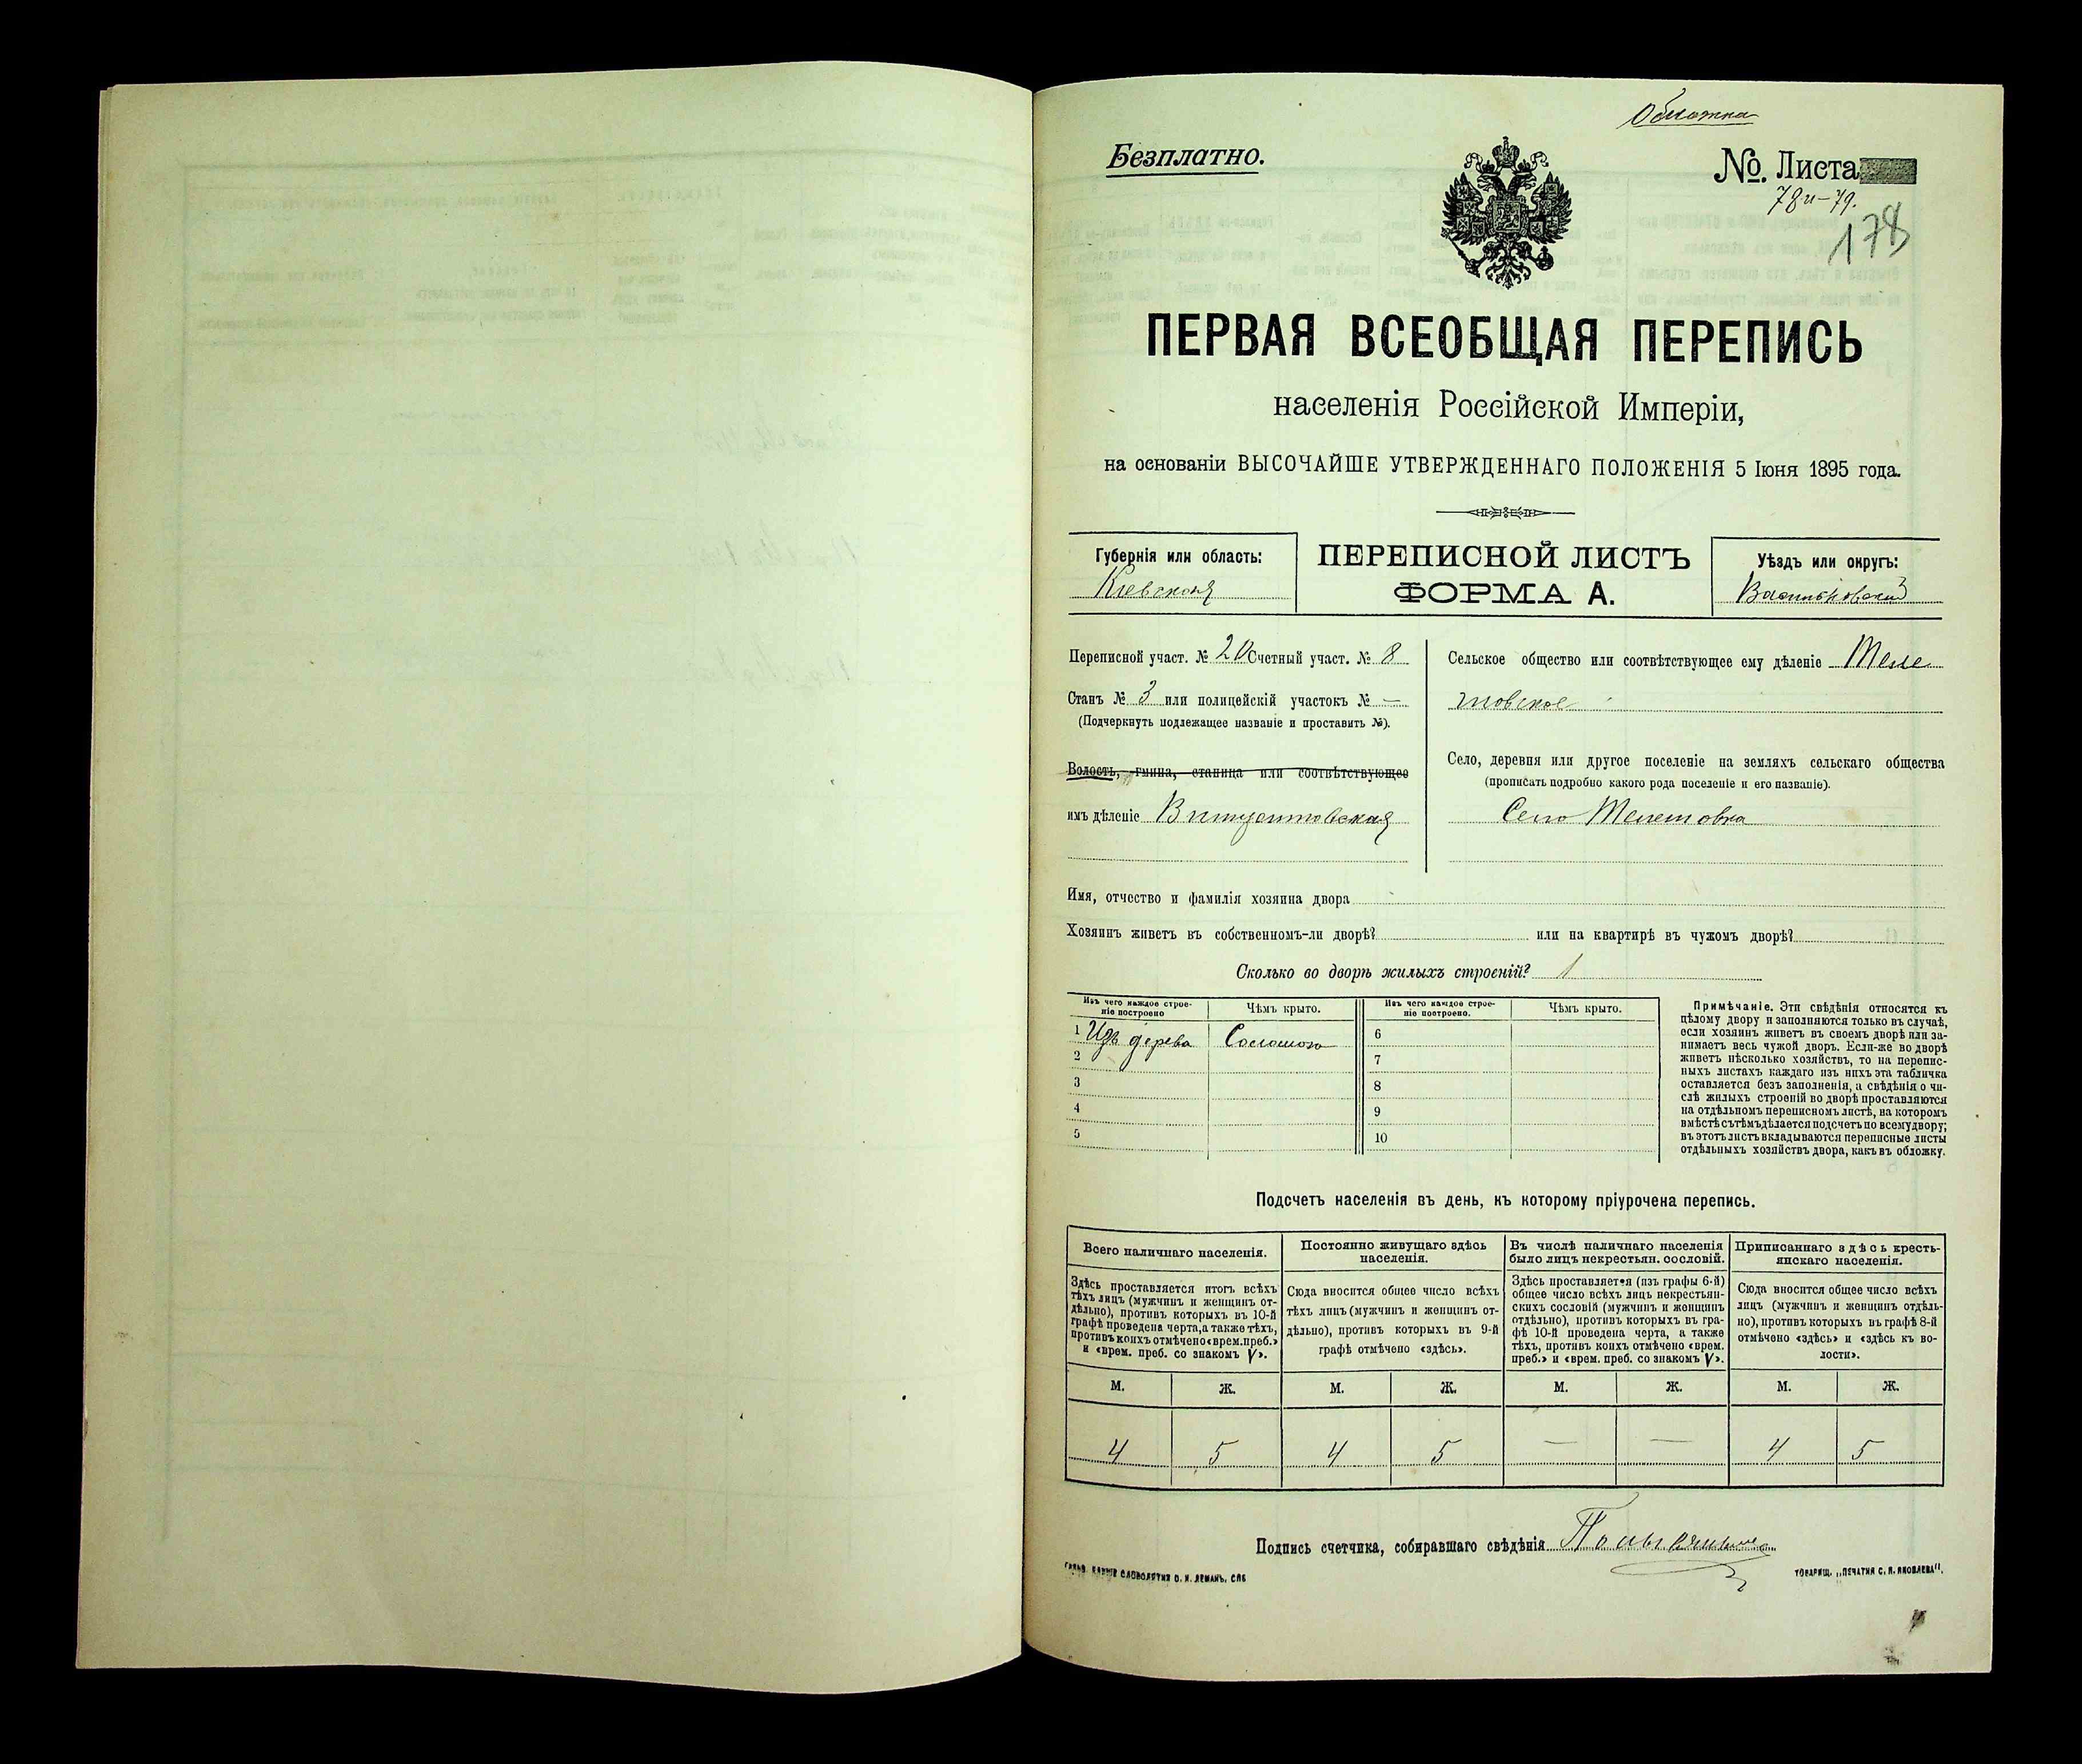 Обложка
Безплатно.
№. Листа
78 и – 79.
178
ПЕРВАЯ ВСЕОБЩАЯ ПЕРЕПИСЬ
населенія Россійской Имперіи,
на основаніи ВЫСОЧАЙШЕ УТВЕРЖДЕННАГО ПОЛОЖЕНІЯ 5 Іюня 1895 года.
Губернія или область:
Кіевская
ПЕРЕПИСНОЙ ЛИСТЪ
ФОРМА А.
Уѣздъ или округъ:
Васильковскій
Переписной участ. № 20 Счетный участ. № 8
Станъ № 3 или полицейскій участокъ № —
(Подчеркнуть подлежащее названіе и проставить №).
Волость, гмина, станица или соотвѣтствующее
имъ дѣленіе Винцентовская
Сельское общество или соотвѣтствующее ему дѣленіе Теле
товское
Село, деревня или другое поселеніе на земляхъ сельскаго общества
(прописать подробно какого рода поселеніе и его названіе).
Село Телетовка
Имя, отчество и фамилія хозяина двора
Хозяинъ живетъ въ собственномъ-ли дворѣ? или на квартирѣ въ чужомъ дворѣ?
Сколько во дворѣ жилыхъ строеній? 1
Изъ чего каждое строе-
ніе построено
Чѣмъ крыто.
Изъ чего каждое строе-
ніе построено.
Чѣмъ крыто.
1 Изъ дерева Соломою
2
3
4
5
6
7
8
9
10
Примѣчаніе. Эти свѣдѣнія относятся къ
цѣлому двору и заполняются только въ случаѣ,
если хозяинъ живетъ въ своемъ дворѣ или за-
нимаетъ весь чужой дворъ. Если-же во дворѣ
живетъ нѣсколько хозяйствъ, то на перепис-
ныхъ листахъ каждаго изъ нихъ эта табличка
оставляется безъ заполненія, а свѣдѣнія о чи-
слѣ жилыхъ строеній во дворѣ проставляются
на отдѣльномъ переписномъ листѣ, на которомъ
вмѣстѣ съ тѣмъ дѣлается подсчетъ по всему двору;
въ этотъ листъ вкладываются переписные листы
отдѣльныхъ хозяйствъ двора, какъ въ обложку.
Подсчетъ населенія въ день, къ которому пріурочена перепись.
Всего наличнаго населенія.
Здѣсь проставляется итогъ всѣхъ
тѣхъ лицъ (мужчинъ и женщинъ от-
дѣльно), противъ которыхъ въ 10-й
графѣ проведена черта, а также тѣхъ,
противъ коихъ отмѣчено «врем. преб.»
и «врем. преб. со знакомъ V».
Постоянно живущаго здѣсь
населенія.
Сюда вносится общее число всѣхъ
тѣхъ лицъ (мужчинъ и женщинъ от-
дѣльно), противъ которыхъ въ 9-й
графѣ отмѣчено «здѣсь».
Въ числѣ наличнаго населенія
было лицъ некрестьян. сословій.
Здѣсь проставляется (изъ графы 6-й)
общее число всѣхъ лицъ некрестьян-
скихъ сословій (мужчинъ и женщинъ
отдѣльно), противъ которыхъ въ гра-
фѣ 10-й проведена черта, а также
тѣхъ, противъ коихъ отмѣчено «врем.
преб.» и «врем. преб. со знакомъ V».
Приписаннаго здѣсь кресть-
янскаго населенія.
Сюда вносится общее число всѣхъ
лицъ (мужчинъ и женщинъ отдѣль-
но), противъ которыхъ въ графѣ 8-й
отмѣчено «здѣсь» и «здѣсь къ во-
лости».
М. Ж. М. Ж. М. Ж. М. Ж.
4 5 4 5 — — 4 5
Подпись счетчика, собиравшаго свѣдѣнія
СЛОВОЛИТНЯ О. И. ЛЕМАНЪ, СПБ
ТОВАРИЩ. „ПЕЧАТНЯ С. П. ЯКОВЛЕВА".